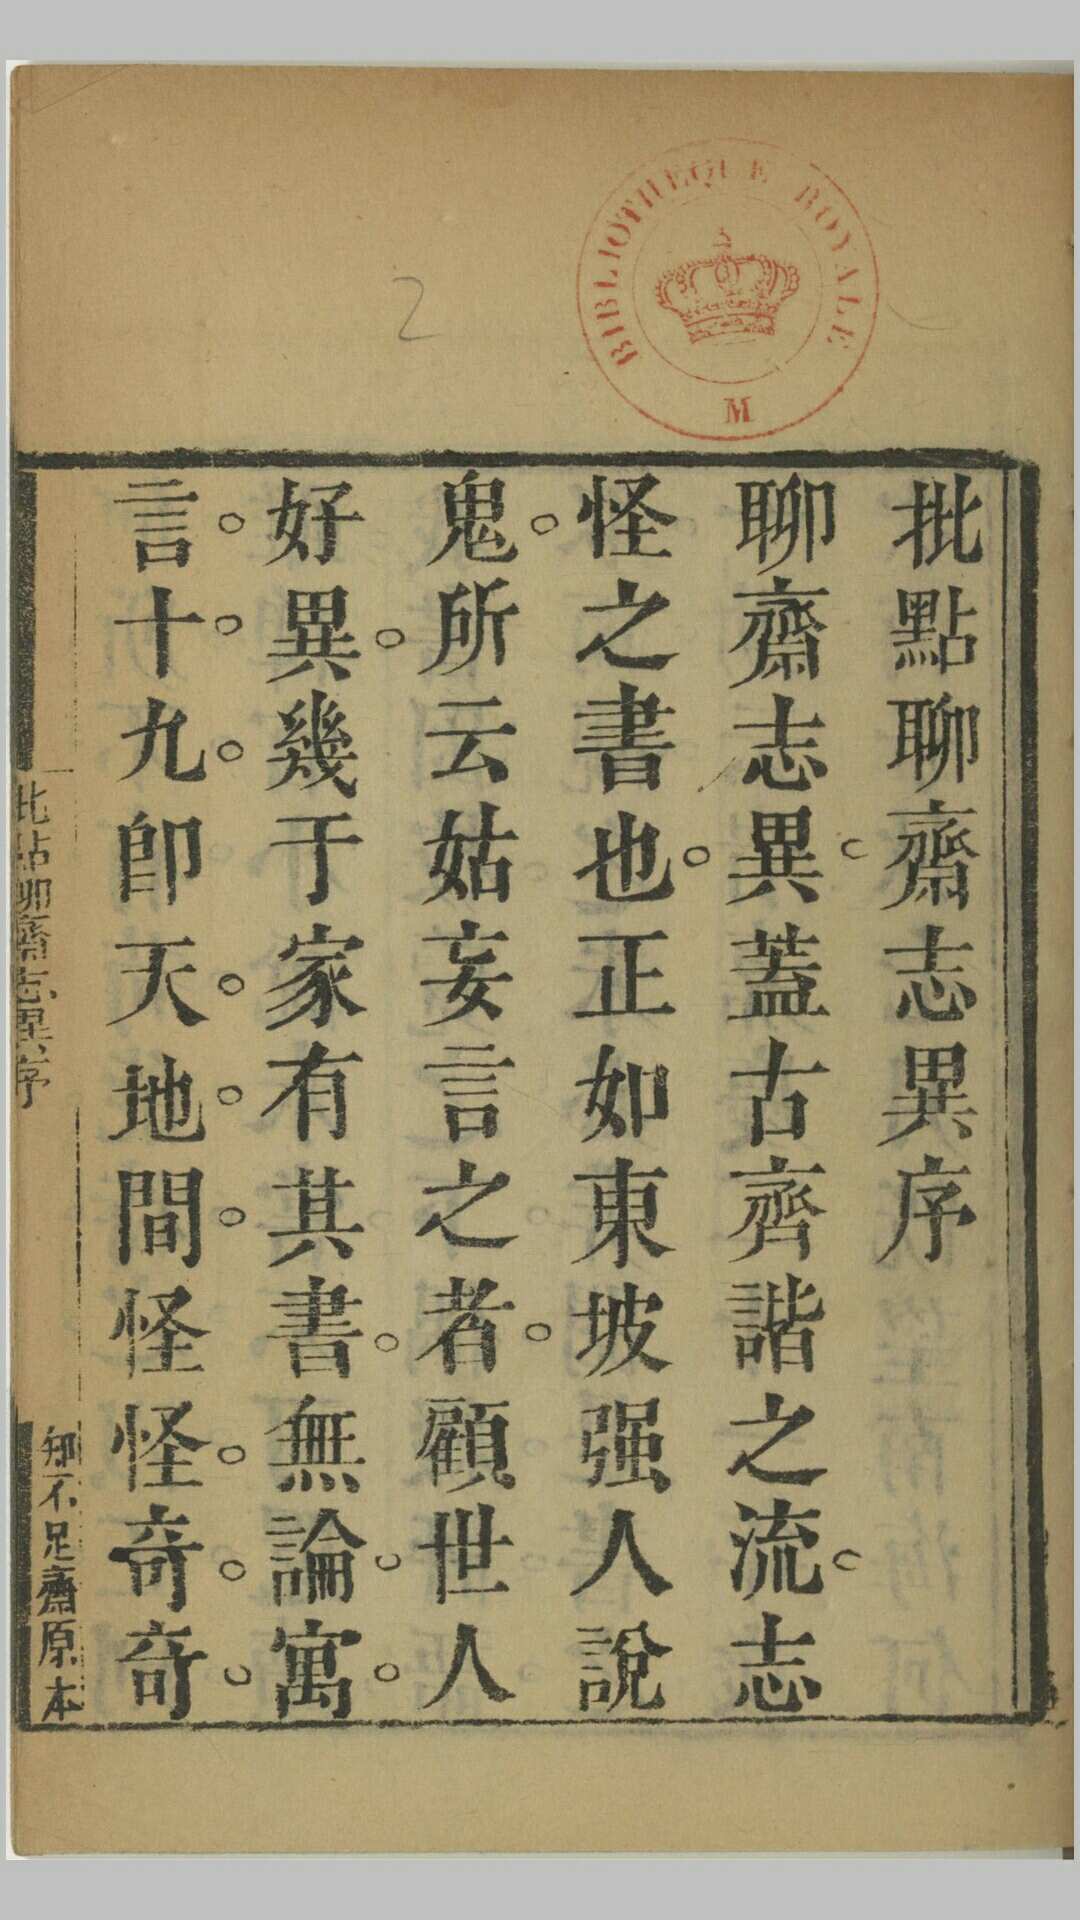 BIBLIOTHEQUE ROYALE
M
2
批點聊齋志異序
聊齋志異蓋古齊諧之流志
怪之書也正如東坡强人說
鬼所云姑妄言之者顧世人
好異幾于家有其書無論寓
言十九卽天地間怪怪奇奇
批點聊齋志異序
知不足齋原本